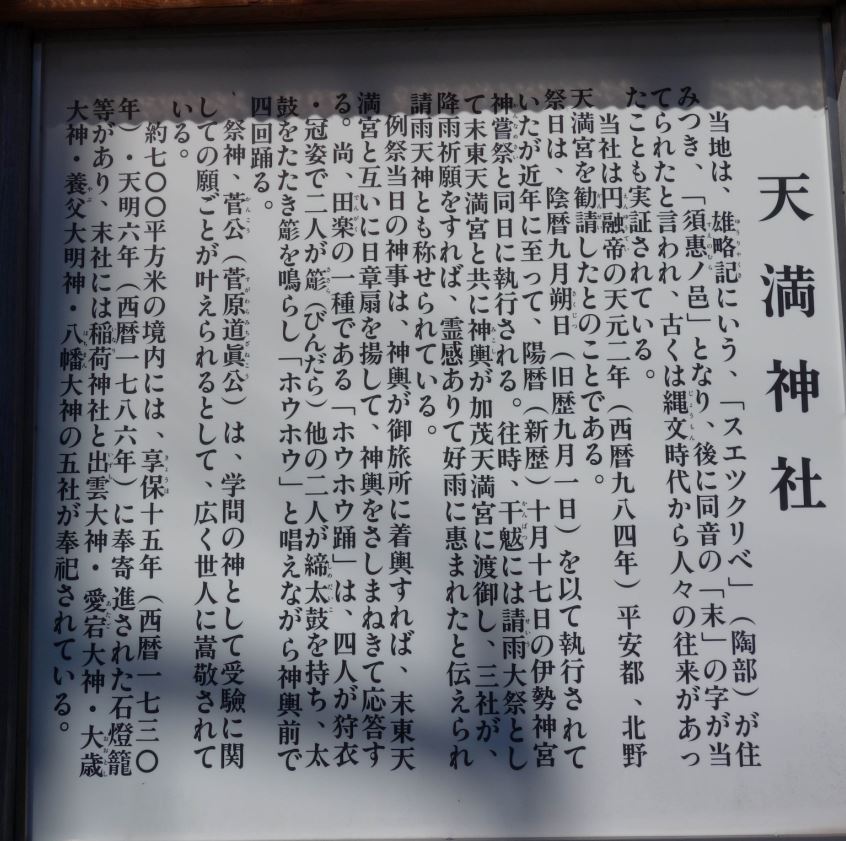 天満神社
当地は、雄略記にいう、「スエツクリベ」（陶部）が住
みつき、「須惠ノ邑」となり、後に同音の「末」の字が当
てられたと言われ、古くは縄文時代から人々の往来があっ
たことも実証されている。
当社は円融帝の天元二年（西暦九八四年）平安都、北野
天満宮を勧請したとのことである。
祭日は、陰暦九月朔日（旧歴九月一日）を以て執行されて
いたが近年に至って、陽暦（新歴）十月十七日の伊勢神宮
神嘗祭と同日に執行される。往時、干魃には請雨大祭とし
て末東天満宮と共に神輿が加茂天満宮に渡御し、三社が、
降雨祈願をすれば、霊感ありて好雨に恵まれたと伝えられ
請雨天神とも称せられている。
例祭当日の神事は、神輿が御旅所に着輿すれば、末東天
満宮と互いに日章扇を揚して、神輿をさしまねきて応答す
る。尚、田楽の一種である「ホウホウ踊」は、四人が狩衣
・冠姿で二人が簓（びんだら）他の二人が締太鼓を持ち、太
鼓をたたき簓を鳴らし「ホウホウ」と唱えながら神輿前で
四回踊る。
祭神、菅公（菅原道眞公）は、学問の神として受驗に関
しての願ごとが叶えられるとして、広く世人に嵩敬されて
いる。
約七〇〇平方米の境内には、享保十五年（西暦一七三〇
年）・天明六年（西暦一七八六年）に奉寄進された石燈籠
等があり、末社には稲荷神社と出雲大神・愛宕大神・大歳
大神・養父大明神・八幡大神の五社が奉祀されている。